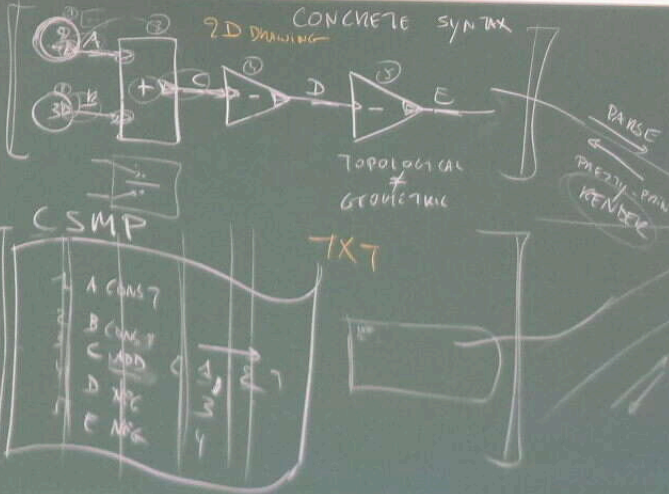 CONCRETE SYNTAX
2D DRAWING
A
B
+
C
-
D
-
E
TOPOLOGICAL
≠
GEOMETRIC
PARSE
PRETTY-PRIN
RENDER
CSMP
TXT
1 A CONST
2 B CONST
3 C ADD
4 D NEG
5 E NEG
1
3
4
2